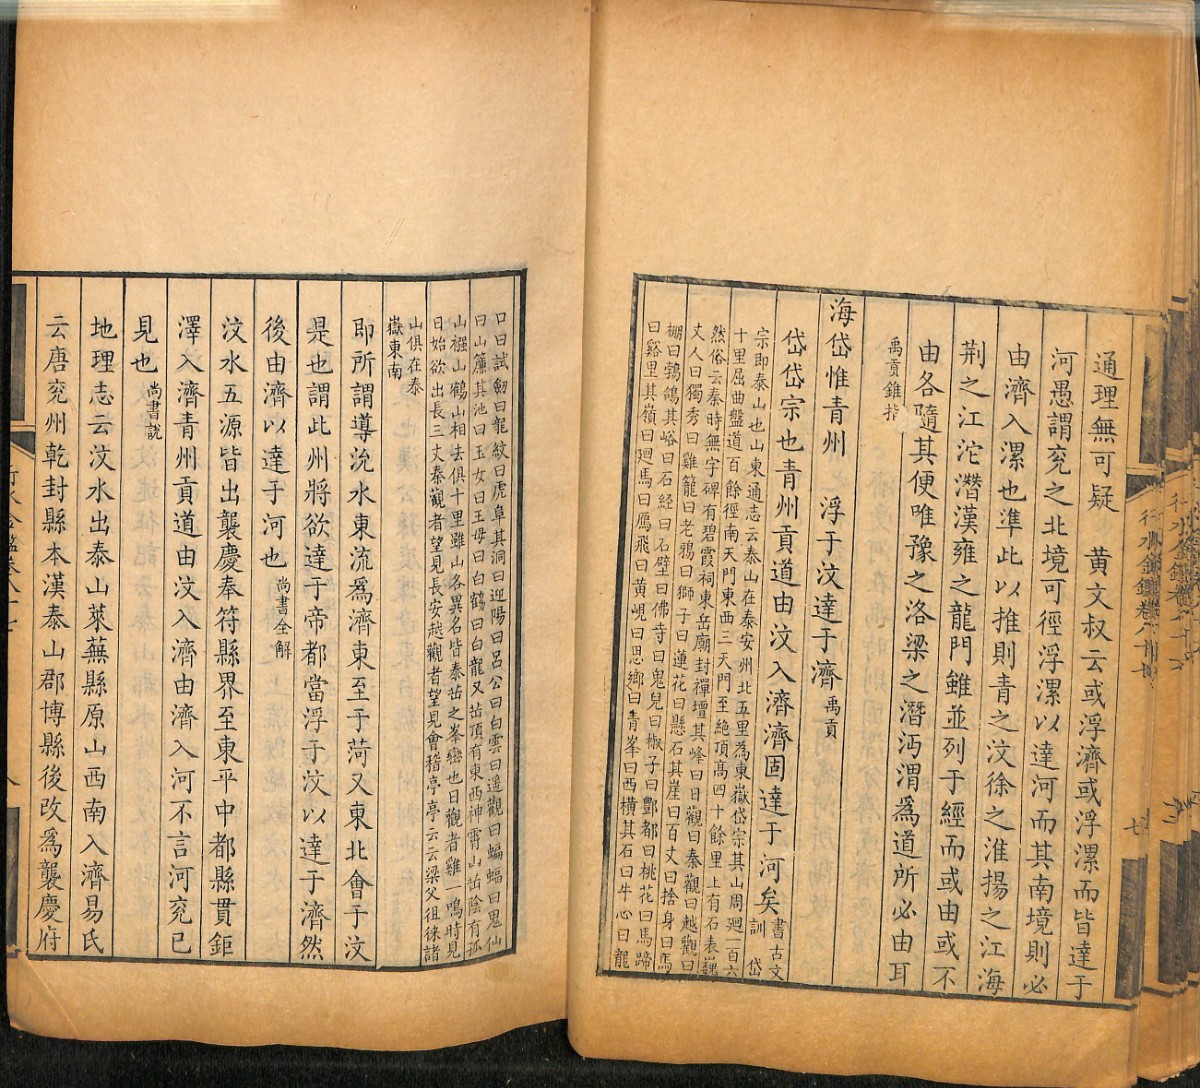 通理無可疑　黃文叔云或浮濟或浮漯而皆達于
河愚謂兖之北境可徑浮漯以達河而其南境則必
由濟入漯也準此以推則青之汶徐之淮揚之江海
荆之江沱潛漢雍之龍門雖並列于經而或由或不
由各隨其便唯豫之洛梁之潛沔渭爲道所必由耳
禹貢錐指
海岱惟青州　浮于汶達于濟禹貢
岱岱宗也青州貢道由汶入濟濟固達于河矣書古文訓　岱
宗即泰山也山東通志云泰山在泰安州北五里爲東嶽岱宗其山周廻一百六
十里屈曲盤道百餘徑南天門東西三天門至絶頂高四十餘里上有石表巍
然俗云秦時無字碑有碧霞祠東岳廟封禪壇其峰曰日觀曰秦觀曰越觀曰
丈人曰獨秀曰雞籠曰老鴉曰獅子曰蓮花曰懸石其崖曰百丈曰捨身曰馬
棚曰鵓鴿其峪曰石經曰石壁曰佛寺曰鬼兒曰椒子曰酆都曰桃花曰馬蹄
曰谿里其嶺曰廻馬曰鴈飛曰黃峴曰思鄉曰青峯曰西橫其石曰牛心曰龍
口曰試劒曰龍紋曰虎阜其洞曰迎陽曰呂公曰白雲曰遥觀曰蝠蝠曰鬼仙
曰山簾其池曰玉女曰王母曰白鶴曰白龍又岳頂有東西神霄山岳陰有孤
山襁山鶴山相去俱十里雖山各異名皆泰岳之峯巒也日觀者雞一鳴時見
日始欲出長三丈秦觀者望見長安越觀者望見會稽亭亭云云梁父徂徠諸
山俱在泰
嶽東南
即所謂導沇水東流爲濟東至于菏又東北會于汶
是也謂此州將欲達于帝都當浮于汶以達于濟然
後由濟以達于河也尚書全解
汶水五源皆出襲慶奉符縣界至東平中都縣貫鉅
澤入濟青州貢道由汶入濟由濟入河不言河兖已
見也尚書説
地理志云汶水出泰山萊蕪縣原山西南入濟易氏
云唐兖州乾封縣本漢泰山郡博縣後改爲襲慶府